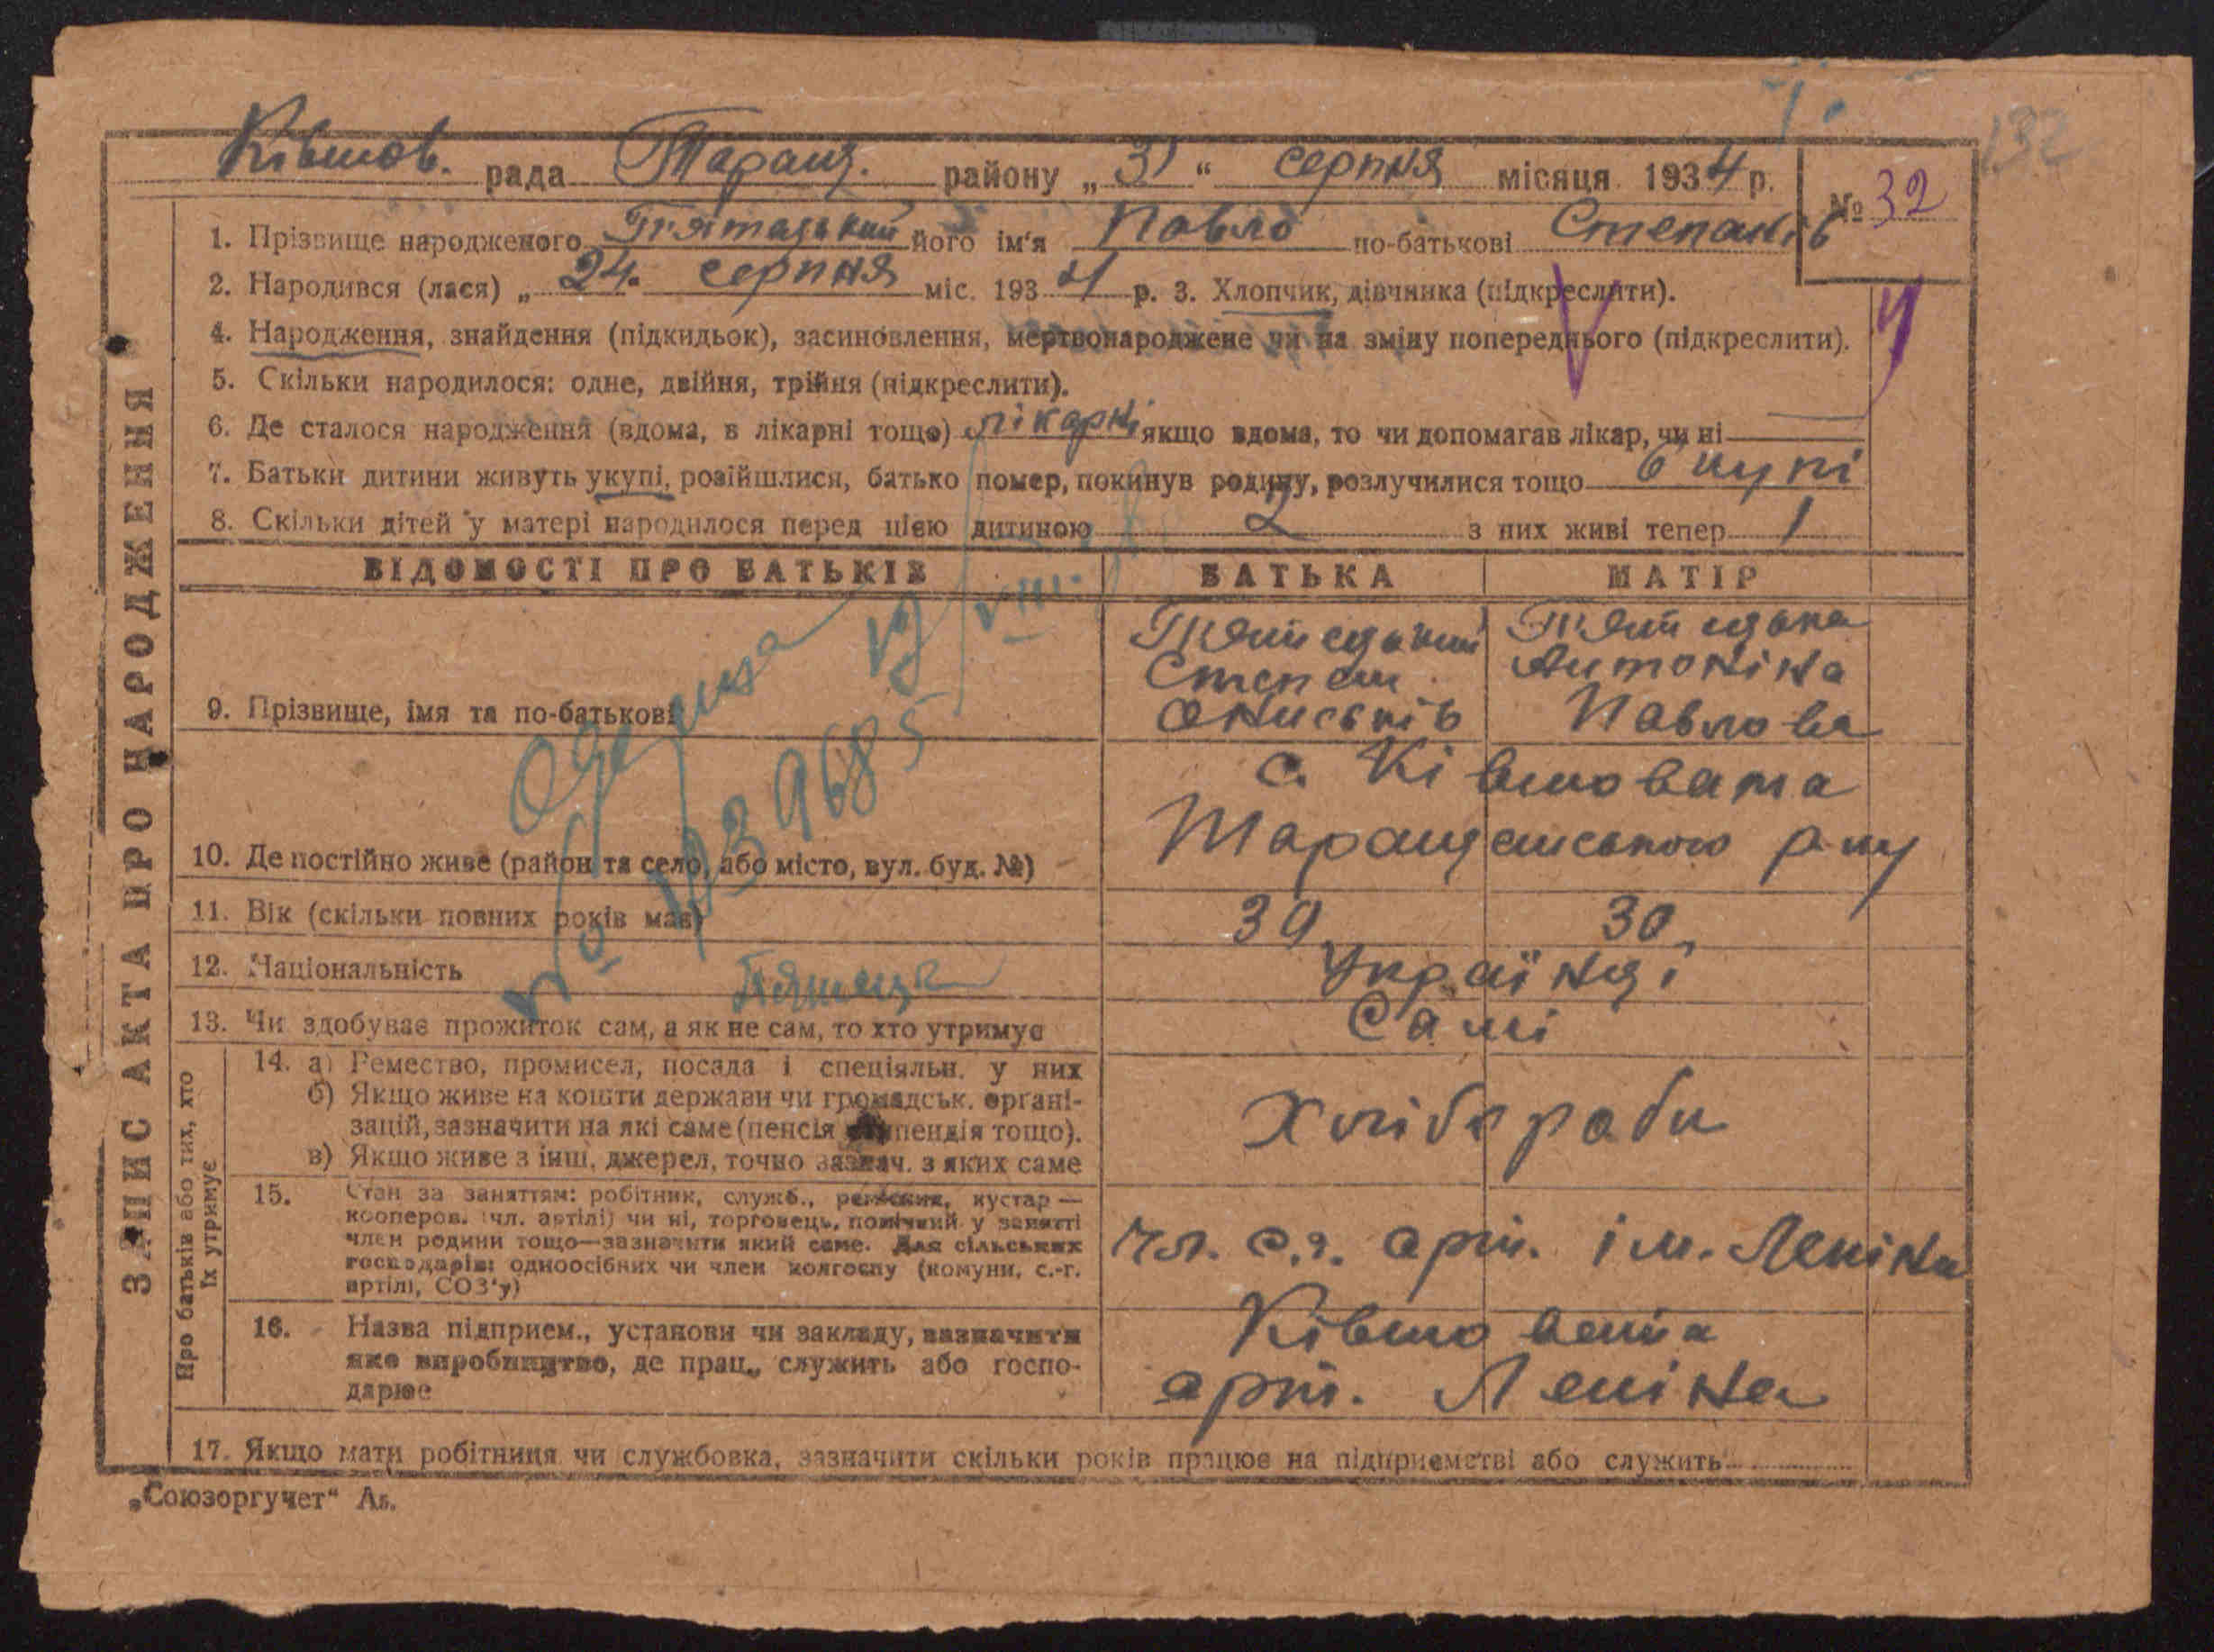 132
Ківшов. рада Таращ. району „31“ серпня місяця 1934 р. № 32
1. Прізвище народженого його ім'я Павло по-батькові Степанів
2. Народився (лася) „24“ серпня міс. 1934 р. 3. Хлопчик, дівчинка (підкреслити).
4. Народження, знайдення (підкидьок), засиновлення, мертвонароджене чи на зміну попереднього (підкреслити).
5. Скільки народилося: одне, двійня, трійня (підкреслити).
6. Де сталося народження (вдома, в лікарні тощо) лікарні якщо вдома, то чи допомагав лікар, чи ні
7. Батьки дитини живуть укупі, розійшлися, батько помер, покинув родину, розлучилися тощо вкупі
8. Скільки дітей у матері народилося перед цією дитиною 2 з них живі тепер 1
ВІДОМОСТІ ПРО БАТЬКІВ БАТЬКА МАТІР
9. Прізвище, імя та по-батькові
Степан Антоніна
Ониськів Павлова
10. Де постійно живе (район та село, або місто, вул. буд. №)
с. Ківшовата
Таращанського р-ну
11. Вік (скільки повних років має) 39 30
12. Національність Українці
13. Чи здобуває прожиток сам, а як не сам, то хто утримує Самі
14. а) Ремество, промисел, посада і спеціяльн. у них
б) Якщо живе на кошти держави чи громадськ. органі-
зацій, зазначити на які саме (пенсія стипендія тощо).
в) Якщо живе з інш. джерел, точно зазнач. з яких саме
Хлібороби
15. Стан за заняттям: робітник, служб., ремісник, кустар —
кооперов. (чл. артілі) чи ні, торговець, помічний у занятті
член родини тощо—зазначити який саме. Для сільських
господарів: одноосібних чи член колгоспу (комуни, с.-г.
артілі, СОЗ'у)
чл. с.г. арт. ім. Леніна
16. Назва підприєм., установи чи закладу, зазначити
яке виробництво, де прац., служить або госпо-
дарює
Ківшовата
арт. Леніна
17. Якщо мати робітниця чи службовка, зазначити скільки років працює на підприємстві або служить
„Союзоргучет“
ЗАПИС АКТА ПРО НАРОДЖЕННЯ
Про батьків або тих, хто
їх утримує
№